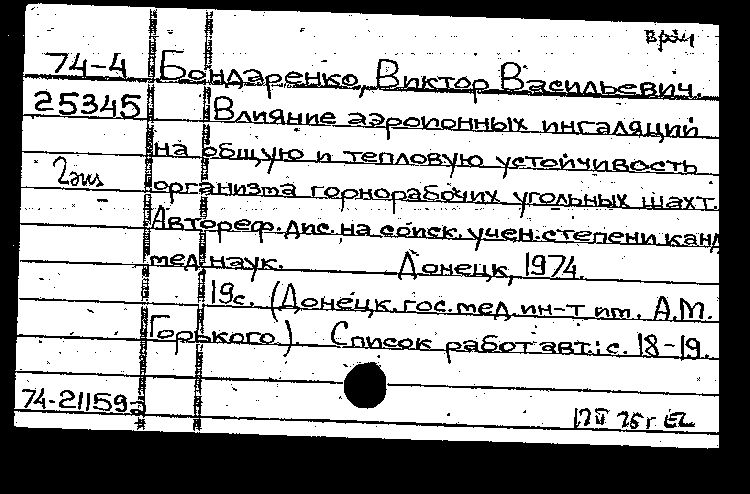 врач
74-4 Бондаренко, Виктор Васильевич.
25345 Влияние аэроионных ингаляций
на общую и тепловую устойчивость
2 экз организма горнорабочих угольных шахт.
Автореф. дис. на соиск. учен. степени канд
мед. наук. Донецк, 1974.
19с. (Донецк. гос. мед. ин-т им. А.М.
Горького). Список работ авт.: с. 18-19.
74-21159
17 II 75 г